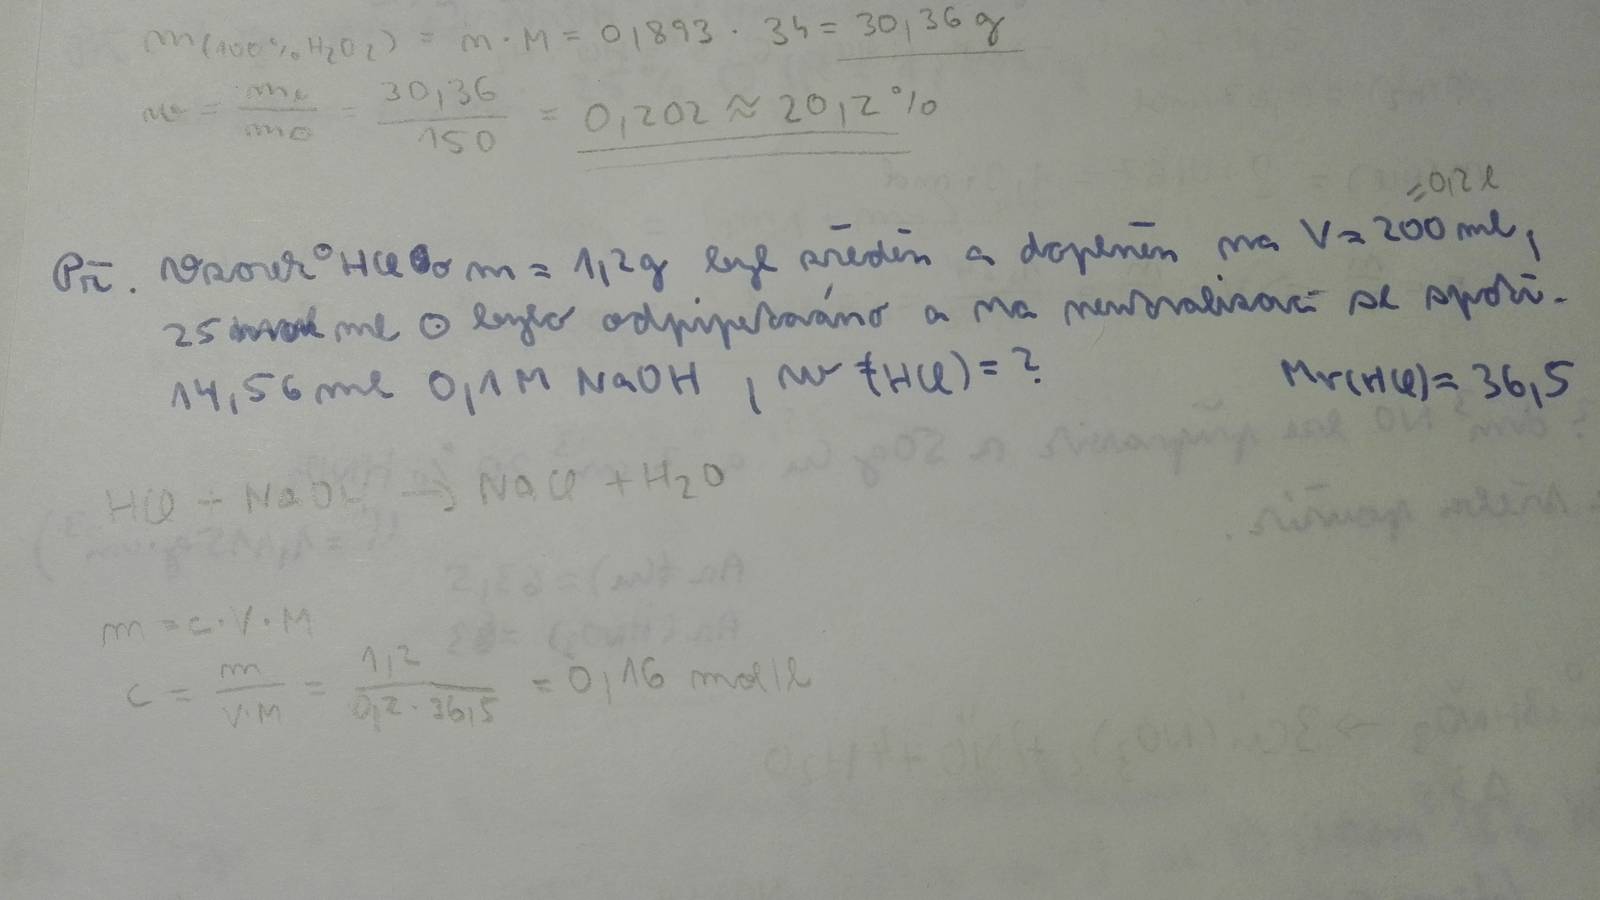 m(100% H2O2) = n · M = 0,893 · 34 = 30,36 g
w = ms / mo = 30,36 / 150 = 0,202 ≈ 20,2 %
= 0,2 l
Př. Vzorek HCl o m = 1,2g byl zředěn a doplněn na V = 200 ml,
25 ml bylo odpipetováno a na neutralizaci se spotř.
14,56 ml 0,1 M NaOH, w (HCl) = ? Mr(HCl) = 36,5
HCl + NaOH → NaCl + H2O
m = c · V · M
c = m / V·M = 1,2 / 0,2 · 36,5 = 0,16 mol/l